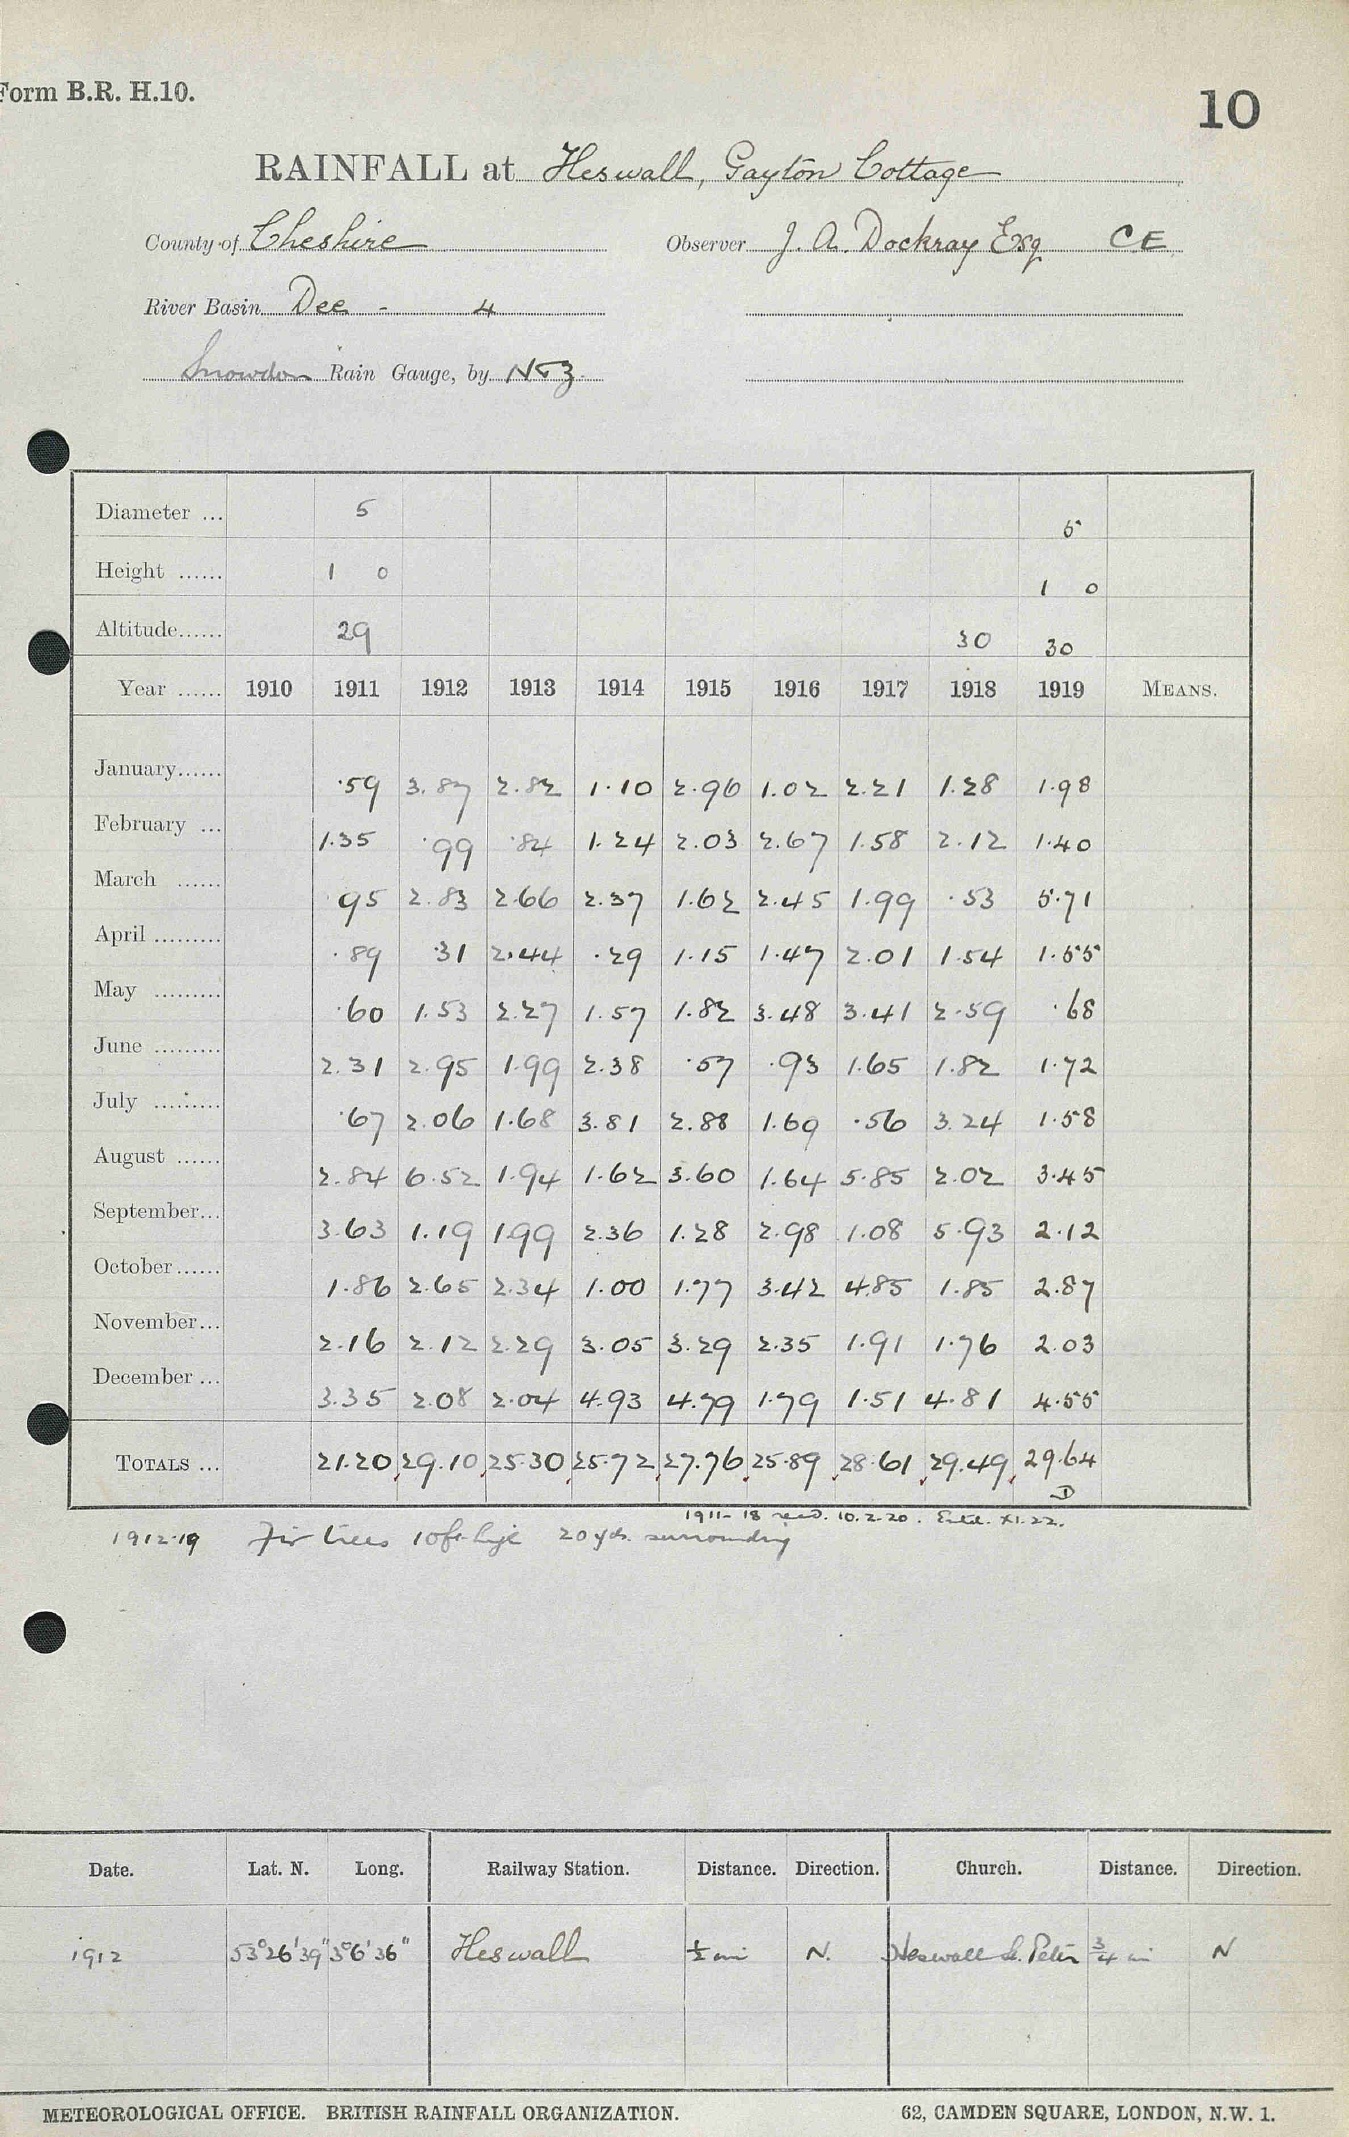 Form B.R. H.10.
10
RAINFALL at Heswall, Gayton Cottage
County of Cheshire Observer J. A. Dockray Esq CE
River Basin Dee - 4
Snowdon Rain Gauge, by N&Z.
Diameter ... 5 5
Height ...... 1 0 1 0
Altitude...... 29 30 30
Year ...... 1910 1911 1912 1913 1914 1915 1916 1917 1918 1919 MEANS.
January...... .59 3.87 2.82 1.10 2.96 1.02 2.21 1.28 1.98
February ... 1.35 .99 .84 1.24 2.03 2.67 1.58 2.12 1.40
March ...... .95 2.83 2.66 2.37 1.62 2.45 1.99 .53 5.71
April ......... .89 .31 2.44 .29 1.15 1.47 2.01 1.54 1.55
May ......... .60 1.53 2.27 1.57 1.82 3.48 3.41 2.59 .68
June ......... 2.31 2.95 1.99 2.38 .57 .93 1.65 1.82 1.72
July ......... .67 2.06 1.68 3.81 2.88 1.69 .56 3.24 1.58
August ...... 2.84 6.52 1.94 1.62 3.60 1.64 5.85 2.02 3.45
September... 3.63 1.19 1.99 2.36 1.28 2.98 1.08 5.93 2.12
October...... 1.86 2.65 2.34 1.00 1.77 3.42 4.85 1.85 2.87
November... 2.16 2.12 2.29 3.05 3.29 2.35 1.91 1.76 2.03
December ... 3.35 2.08 2.04 4.93 4.79 1.79 1.51 4.81 4.55
TOTALS ... 21.20 29.10 25.30 25.72 27.76 25.89 28.61 29.49 29.64
1911-18 recd. 10.2.20. Entd. XI.22.
1912-19 Fir trees 10ft high 20 yds. surrounding
Date. Lat. N. Long. Railway Station. Distance. Direction. Church. Distance. Direction.
1912 53°26'39" 3°6'36" Heswall ½ mi N. Heswall St. Peter ¾ mi N
METEOROLOGICAL OFFICE. BRITISH RAINFALL ORGANIZATION. 62, CAMDEN SQUARE, LONDON, N.W. 1.